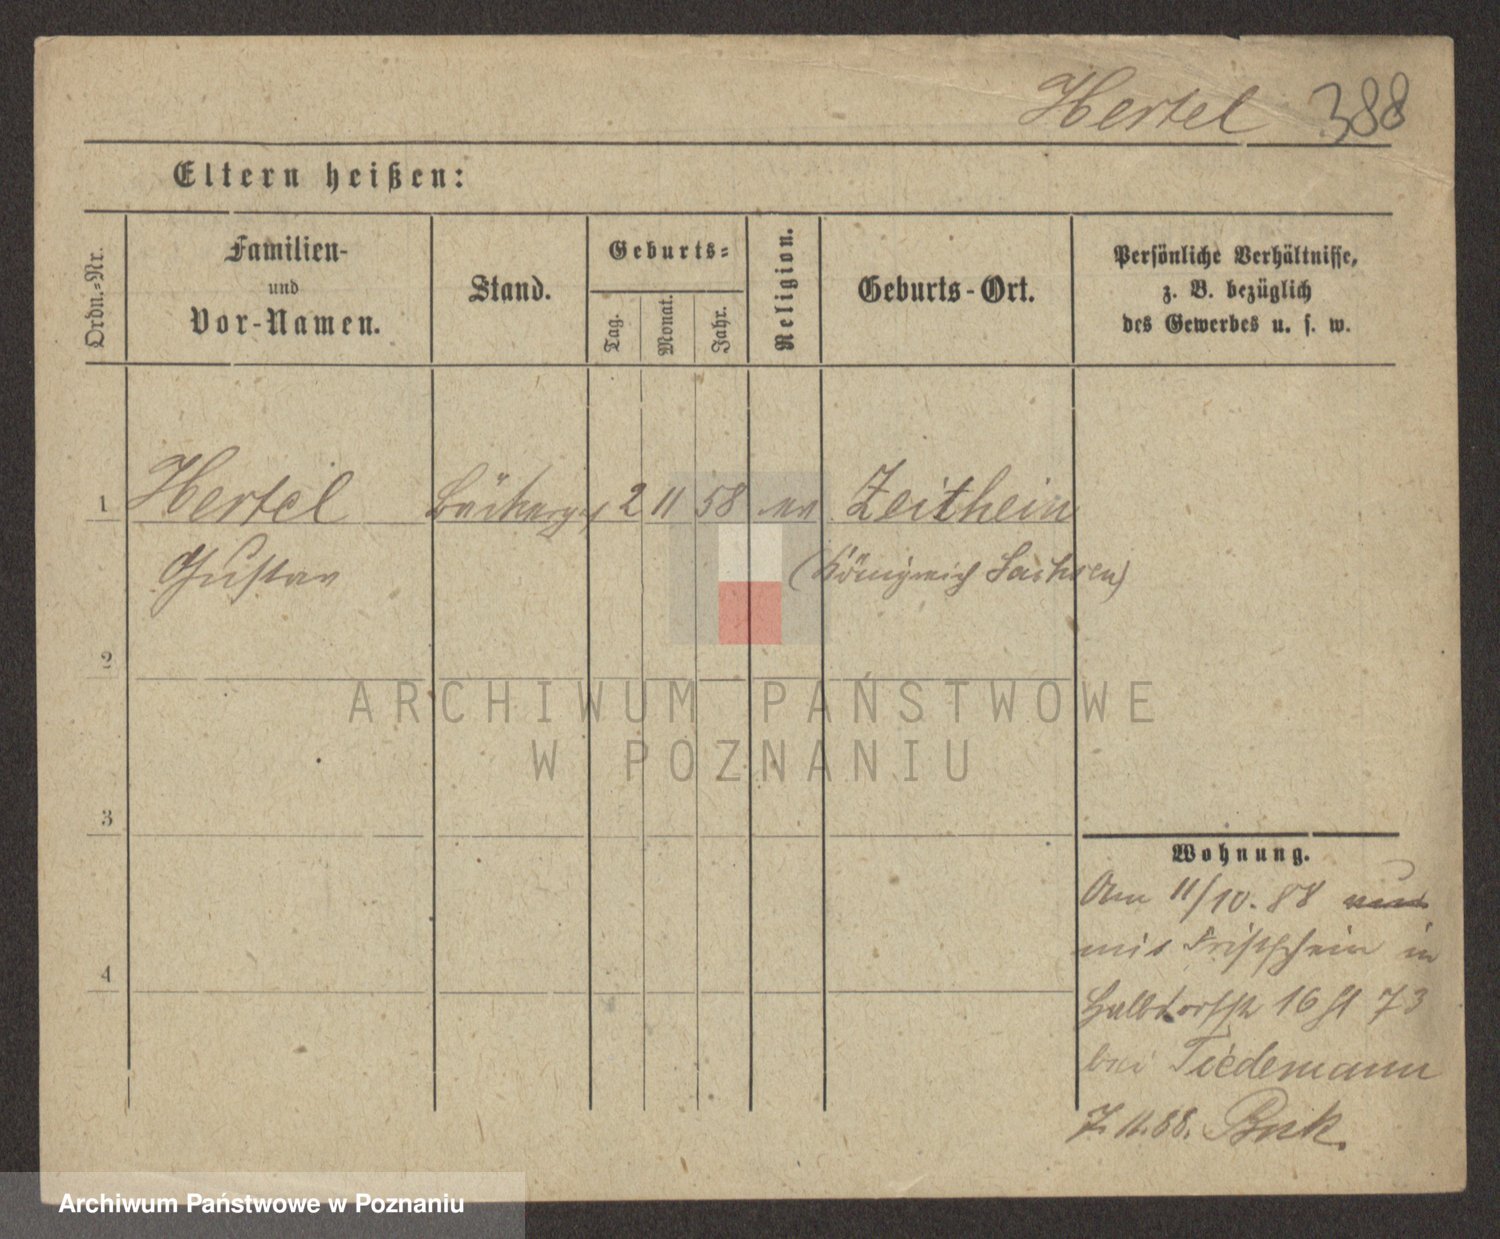 Hertel 388
Eltern heißen:
Ordn.-Nr.
Familien-
und
Vor-Namen.
Stand.
Geburts-
Tag.
Monat.
Jahr.
Religion.
Geburts-Ort.
Persönliche Verhältnisse,
z. B. bezüglich
des Gewerbes u. s. w.
1 Hertel 2 11 58 ev Zeithein
Gustav (Königreich Sachsen)
2
3
4
ARCHIWUM PAŃSTWOWE
W POZNANIU
Wohnung.
Am 11/10. 88
mit in
Halbdorfstr 16 73
bei Tiedemann
7.11.88.
Archiwum Państwowe w Poznaniu